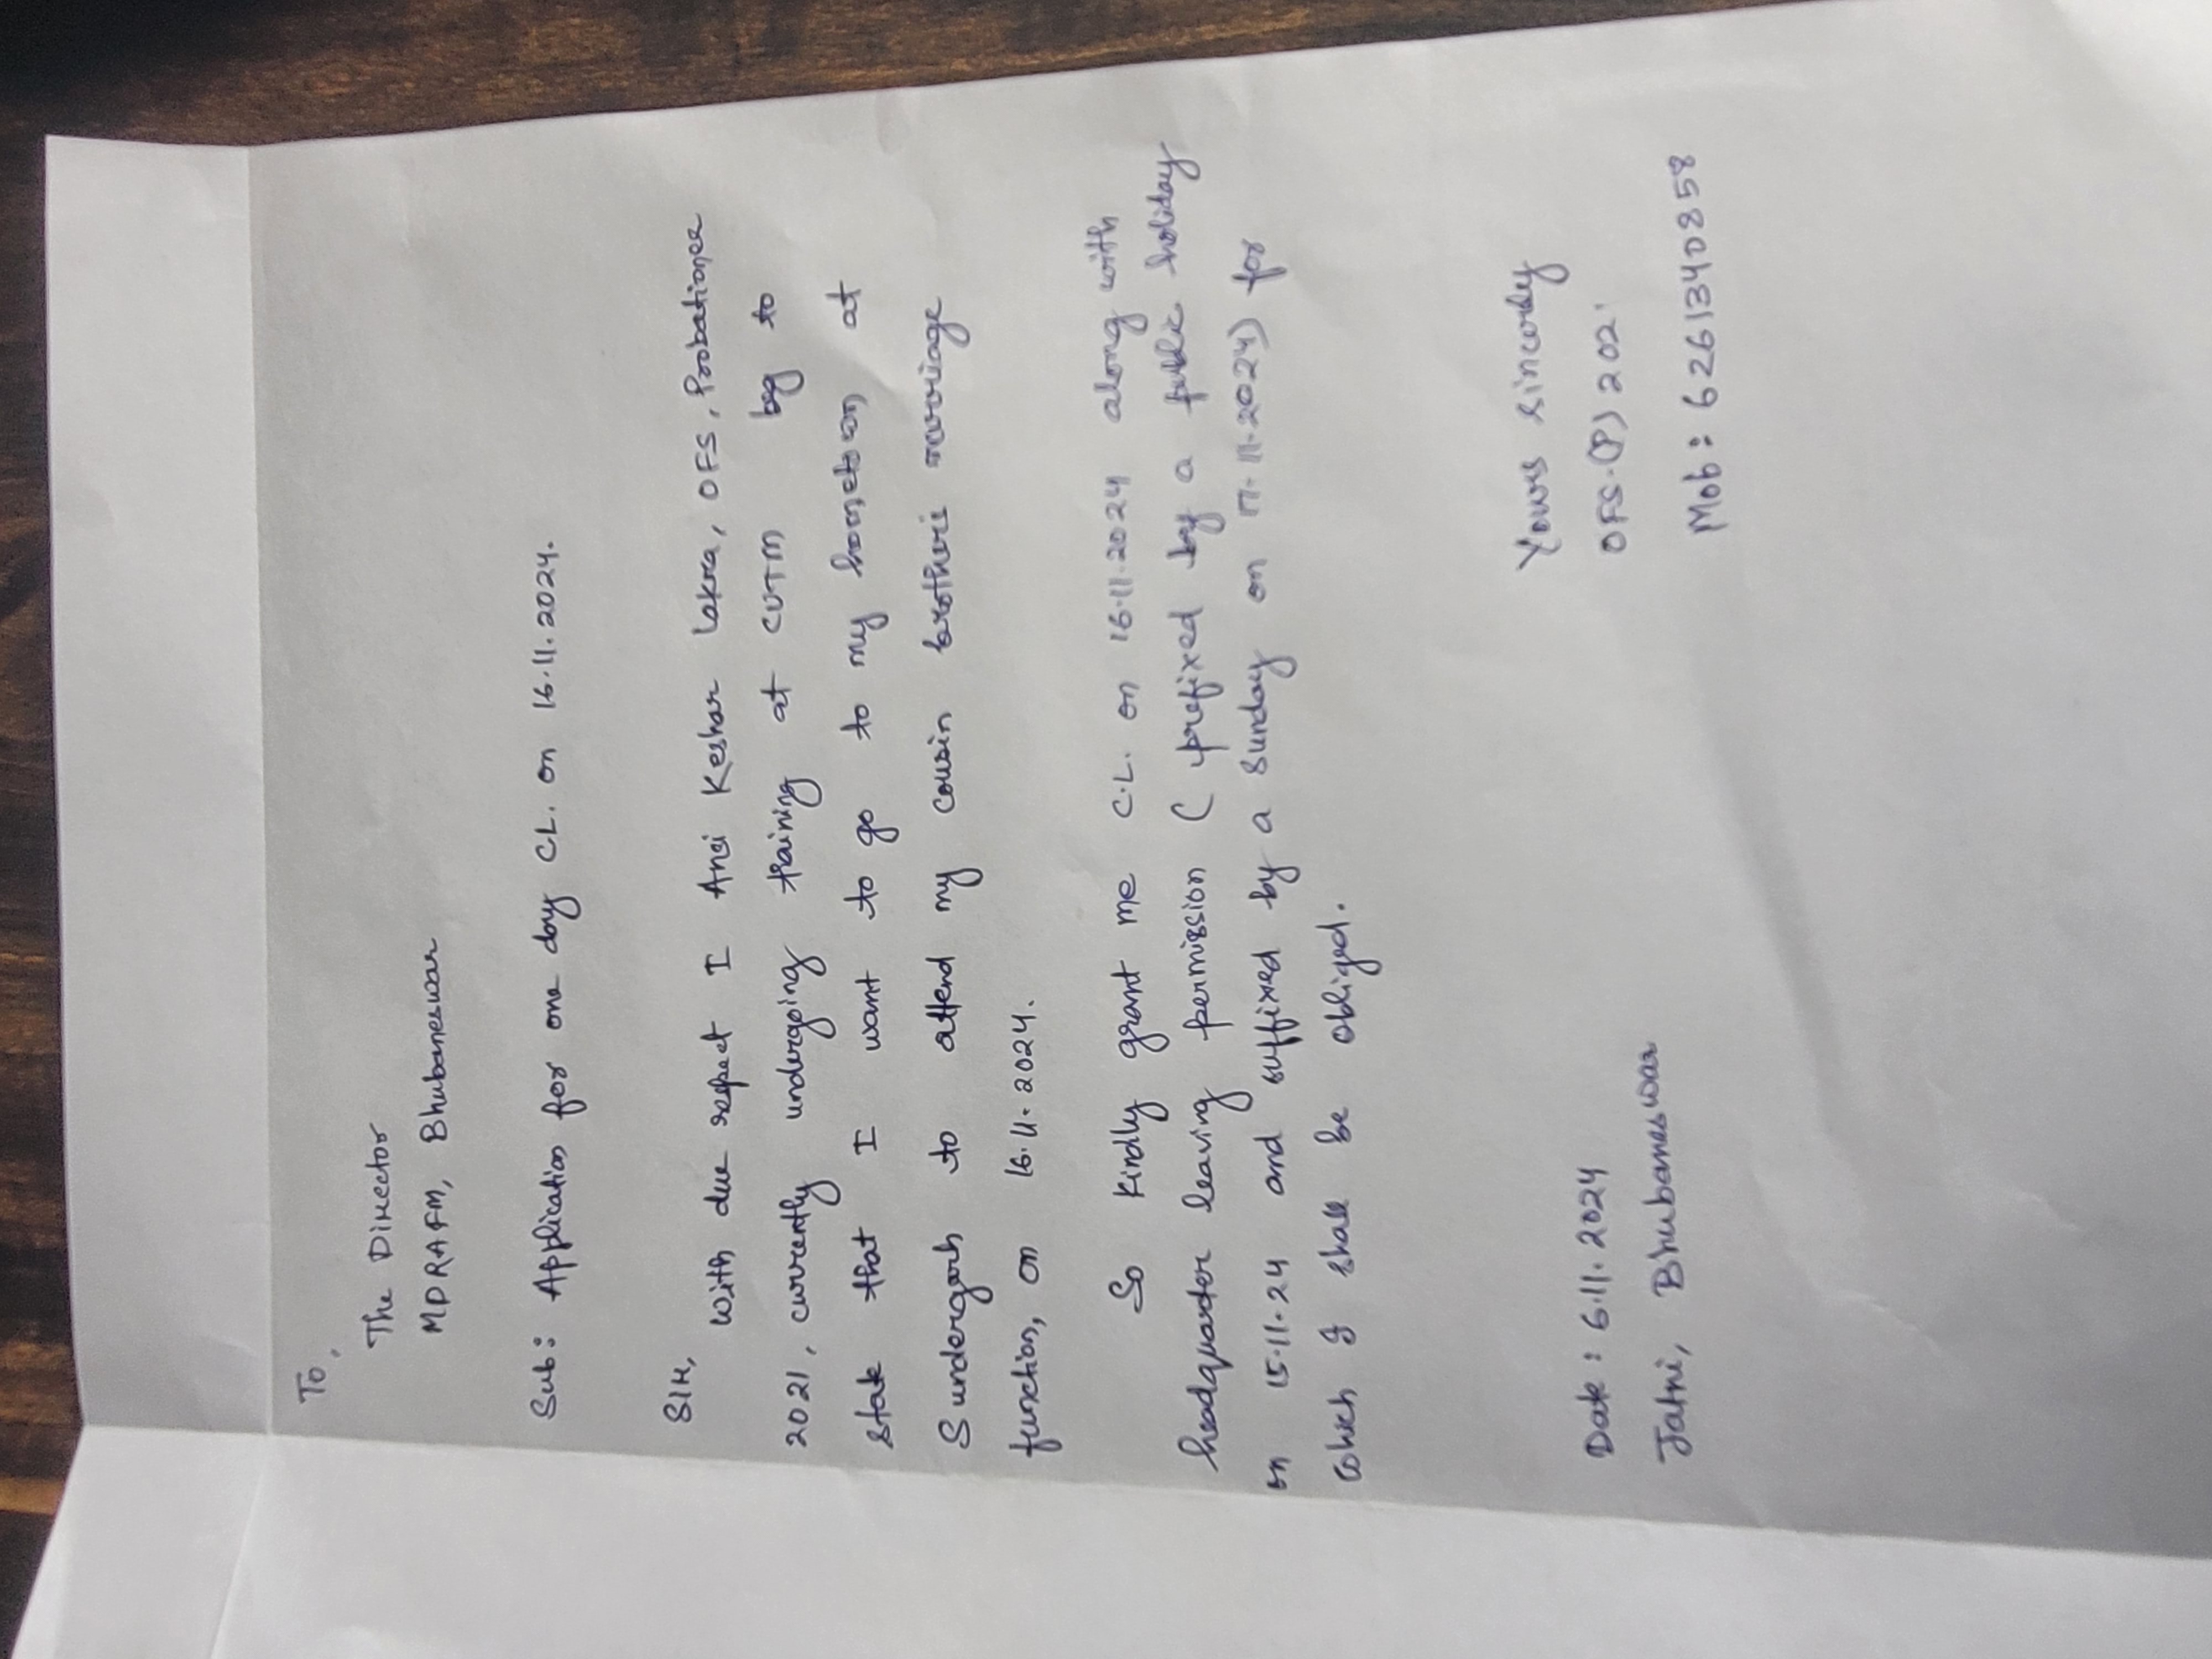 To,
The Director
MDRAFM, Bhubaneswar
Sub: Application for one day CL. on 16.11.2024.
SIR,
With due respect I Ansi Keshar Lakra, OFS, Probationer
2021, currently undergoing training at CUTM beg to
state that I want to go to my hometown at
Sundergarh to attend my cousin brothers marriage
function, on 16.11.2024.
So kindly grant me C.L. on 16.11.2024 along with
headquarter leaving permission ( prefixed by a public holiday
on 15.11.24 and suffixed by a Sunday on 17.11.2024) for
which I shall be obliged.
Yours sincerely
Date : 6.11.2024
OFS-(P) 202
Jatni, Bhubaneswar
Mob : 6261340858